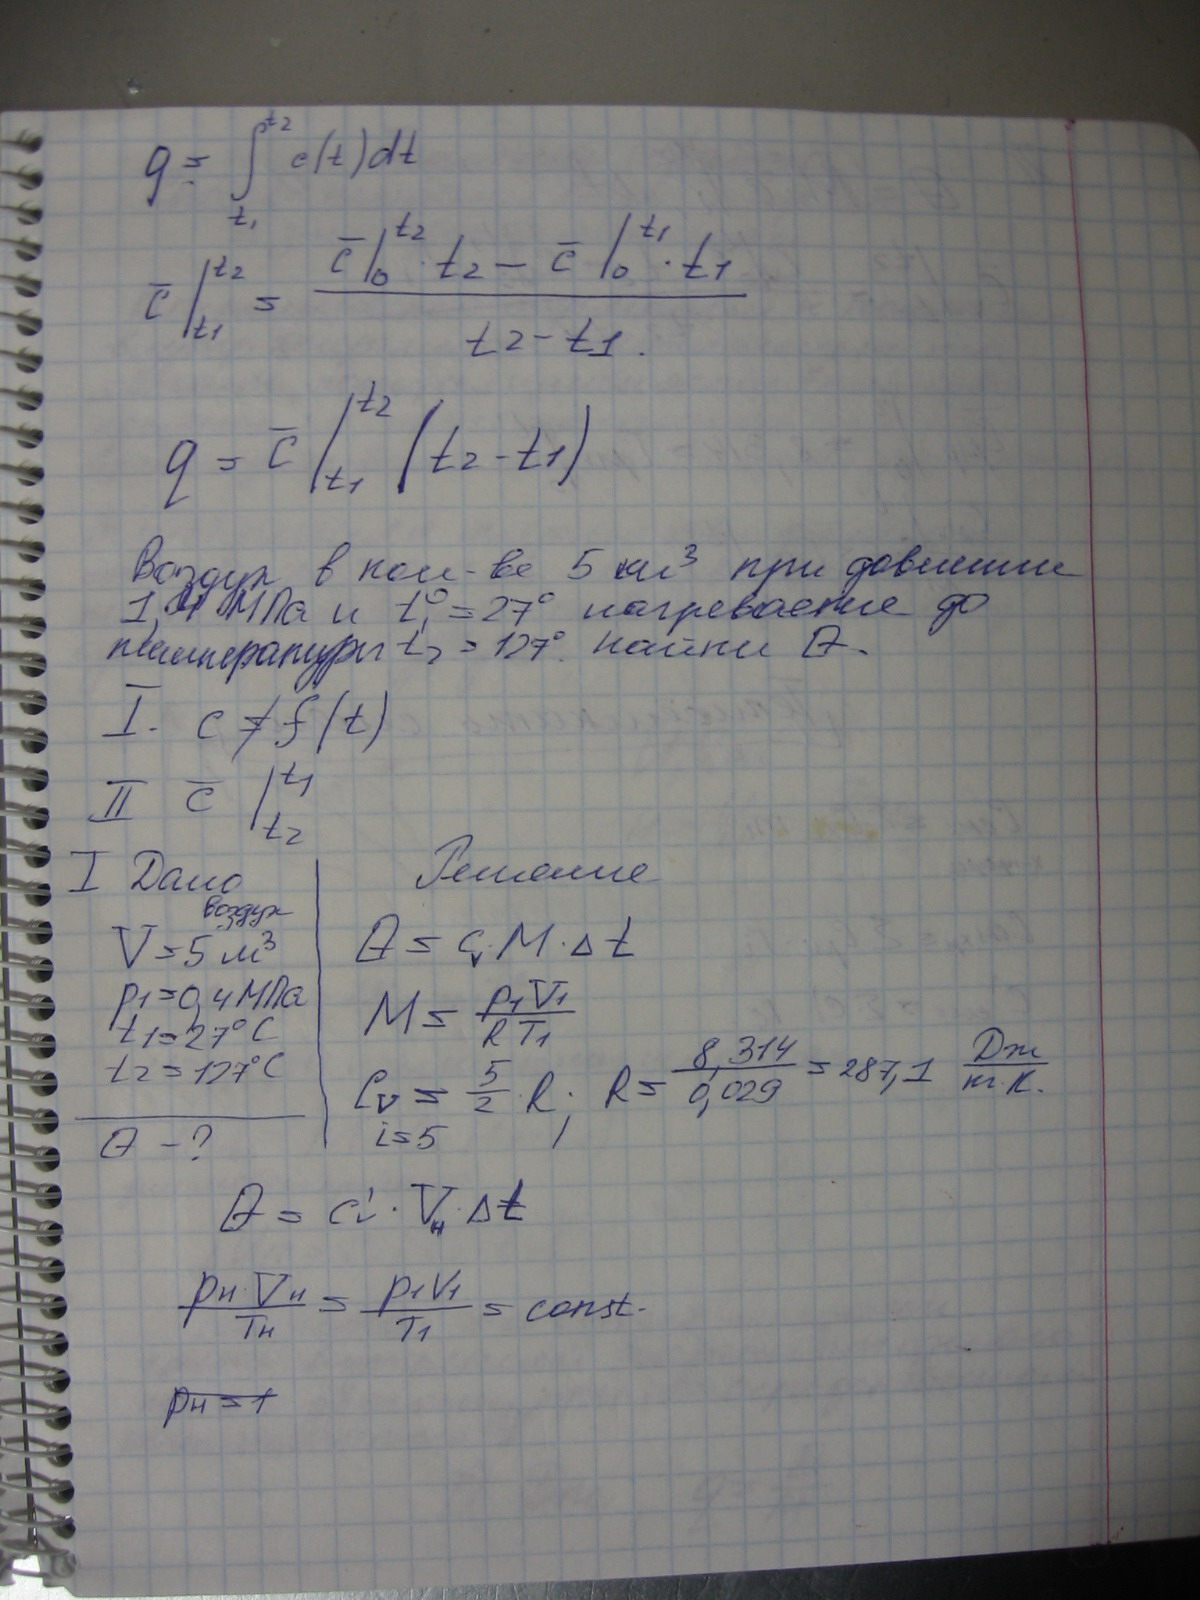 q = ∫_{t1}^{t2} c(t)dt
c̄|_{t1}^{t2} = (c̄|_0^{t2} · t2 − c̄|_0^{t1} · t1) / (t2 − t1).
q = c̄|_{t1}^{t2} (t2 − t1)
Воздух в кол-ве 5 м³ при давлении
МПа и t₁° = 27° нагревается до
температуры t₂ = 127°. Найти Q.
I. c ≠ f(t)
II c̄|_{t2}^{t1}
I Дано
воздух
V = 5 м³
p1 = 0,4 МПа
t1 = 27°C
t2 = 127°C
Q - ?
Решение
Q = cᵥ · M · Δt
M = p1V1 / RT1
Cv = 5/2 · R; R = 8,314 / 0,029 = 287,1 Дж / кг·К.
i = 5
Q = cᵥ' · Vн · Δt
pн · Vн / Tн = p1V1 / T1 = const.
pн = 1